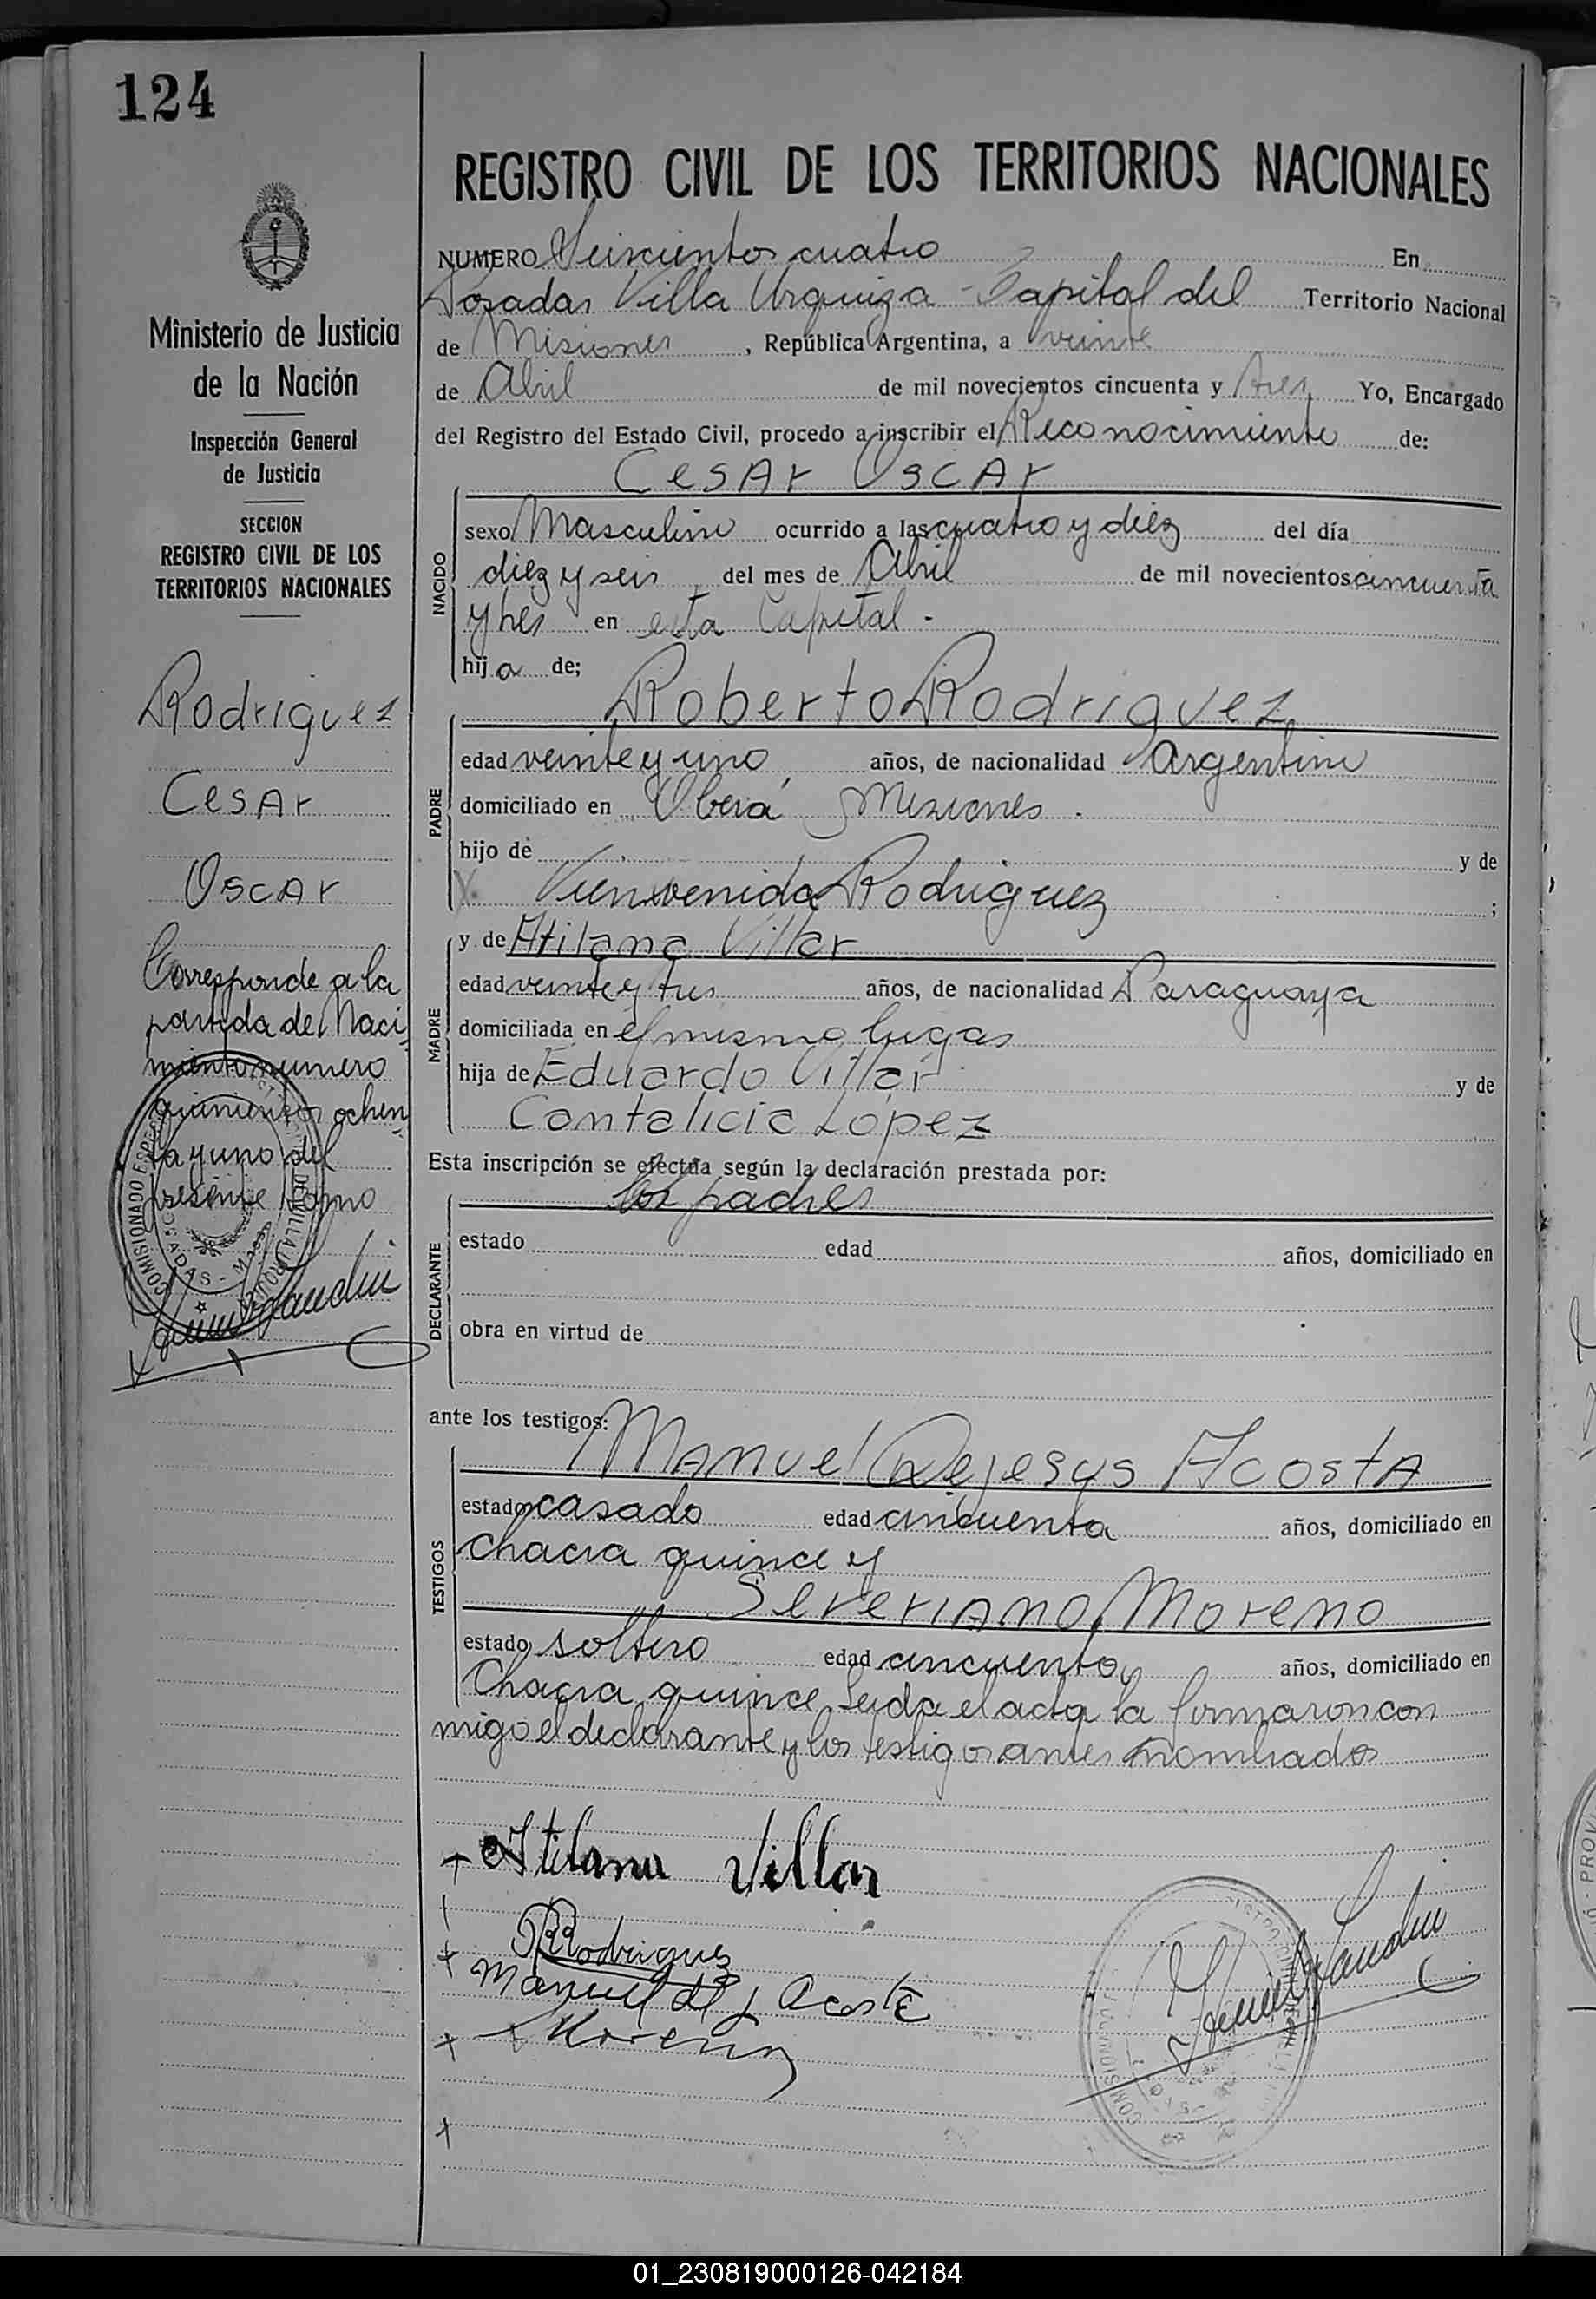 124
REGISTRO CIVIL DE LOS TERRITORIOS NACIONALES
Ministerio de Justicia
de la Nación
Inspección General
de Justicia
SECCION
REGISTRO CIVIL DE LOS
TERRITORIOS NACIONALES
Rodriguez
Cesar
Oscar
Corresponde a la
partida de Naci
miento numero
quinientos ochen
ta y uno del
presente tomo
NUMERO Seiscientos cuatro En
Posadas Villa Urquiza - Capital del Territorio Nacional
de Misiones, República Argentina, a veinte
de Abril de mil novecientos cincuenta y tres Yo, Encargado
del Registro del Estado Civil, procedo a inscribir el Reconocimiento de:
Cesar Oscar
NACIDO
sexo Masculino ocurrido a las cuatro y diez del día
diez y seis del mes de Abril de mil novecientos cincuenta
y tres en esta Capital -
hij a de;
Roberto Rodriguez
PADRE
edad veinte y uno años, de nacionalidad Argentino
domiciliado en Oberá Misiones .
hijo de y de
Vienvenida Rodriguez ;
y de Atilana Villar
MADRE
edad veinte y tres años, de nacionalidad Paraguaya
domiciliada en el mismo lugar
hija de Eduardo Villar y de
Cantalicia López
Esta inscripción se efectúa según la declaración prestada por:
los padres
DECLARANTE
estado edad años, domiciliado en
obra en virtud de
ante los testigos:
Manuel Dejesus Acosta
TESTIGOS
estado casado edad cincuenta años, domiciliado en
Chacra quince y
Severiano Moreno
estado soltero edad cincuenta años, domiciliado en
Chacra quince Leida el acta la firmaron con
migo el declarante y los testigos antes nombrados
Atilana Villar
R Rodriguez
Manuel de J Acosta
Moreno
01_230819000126-042184